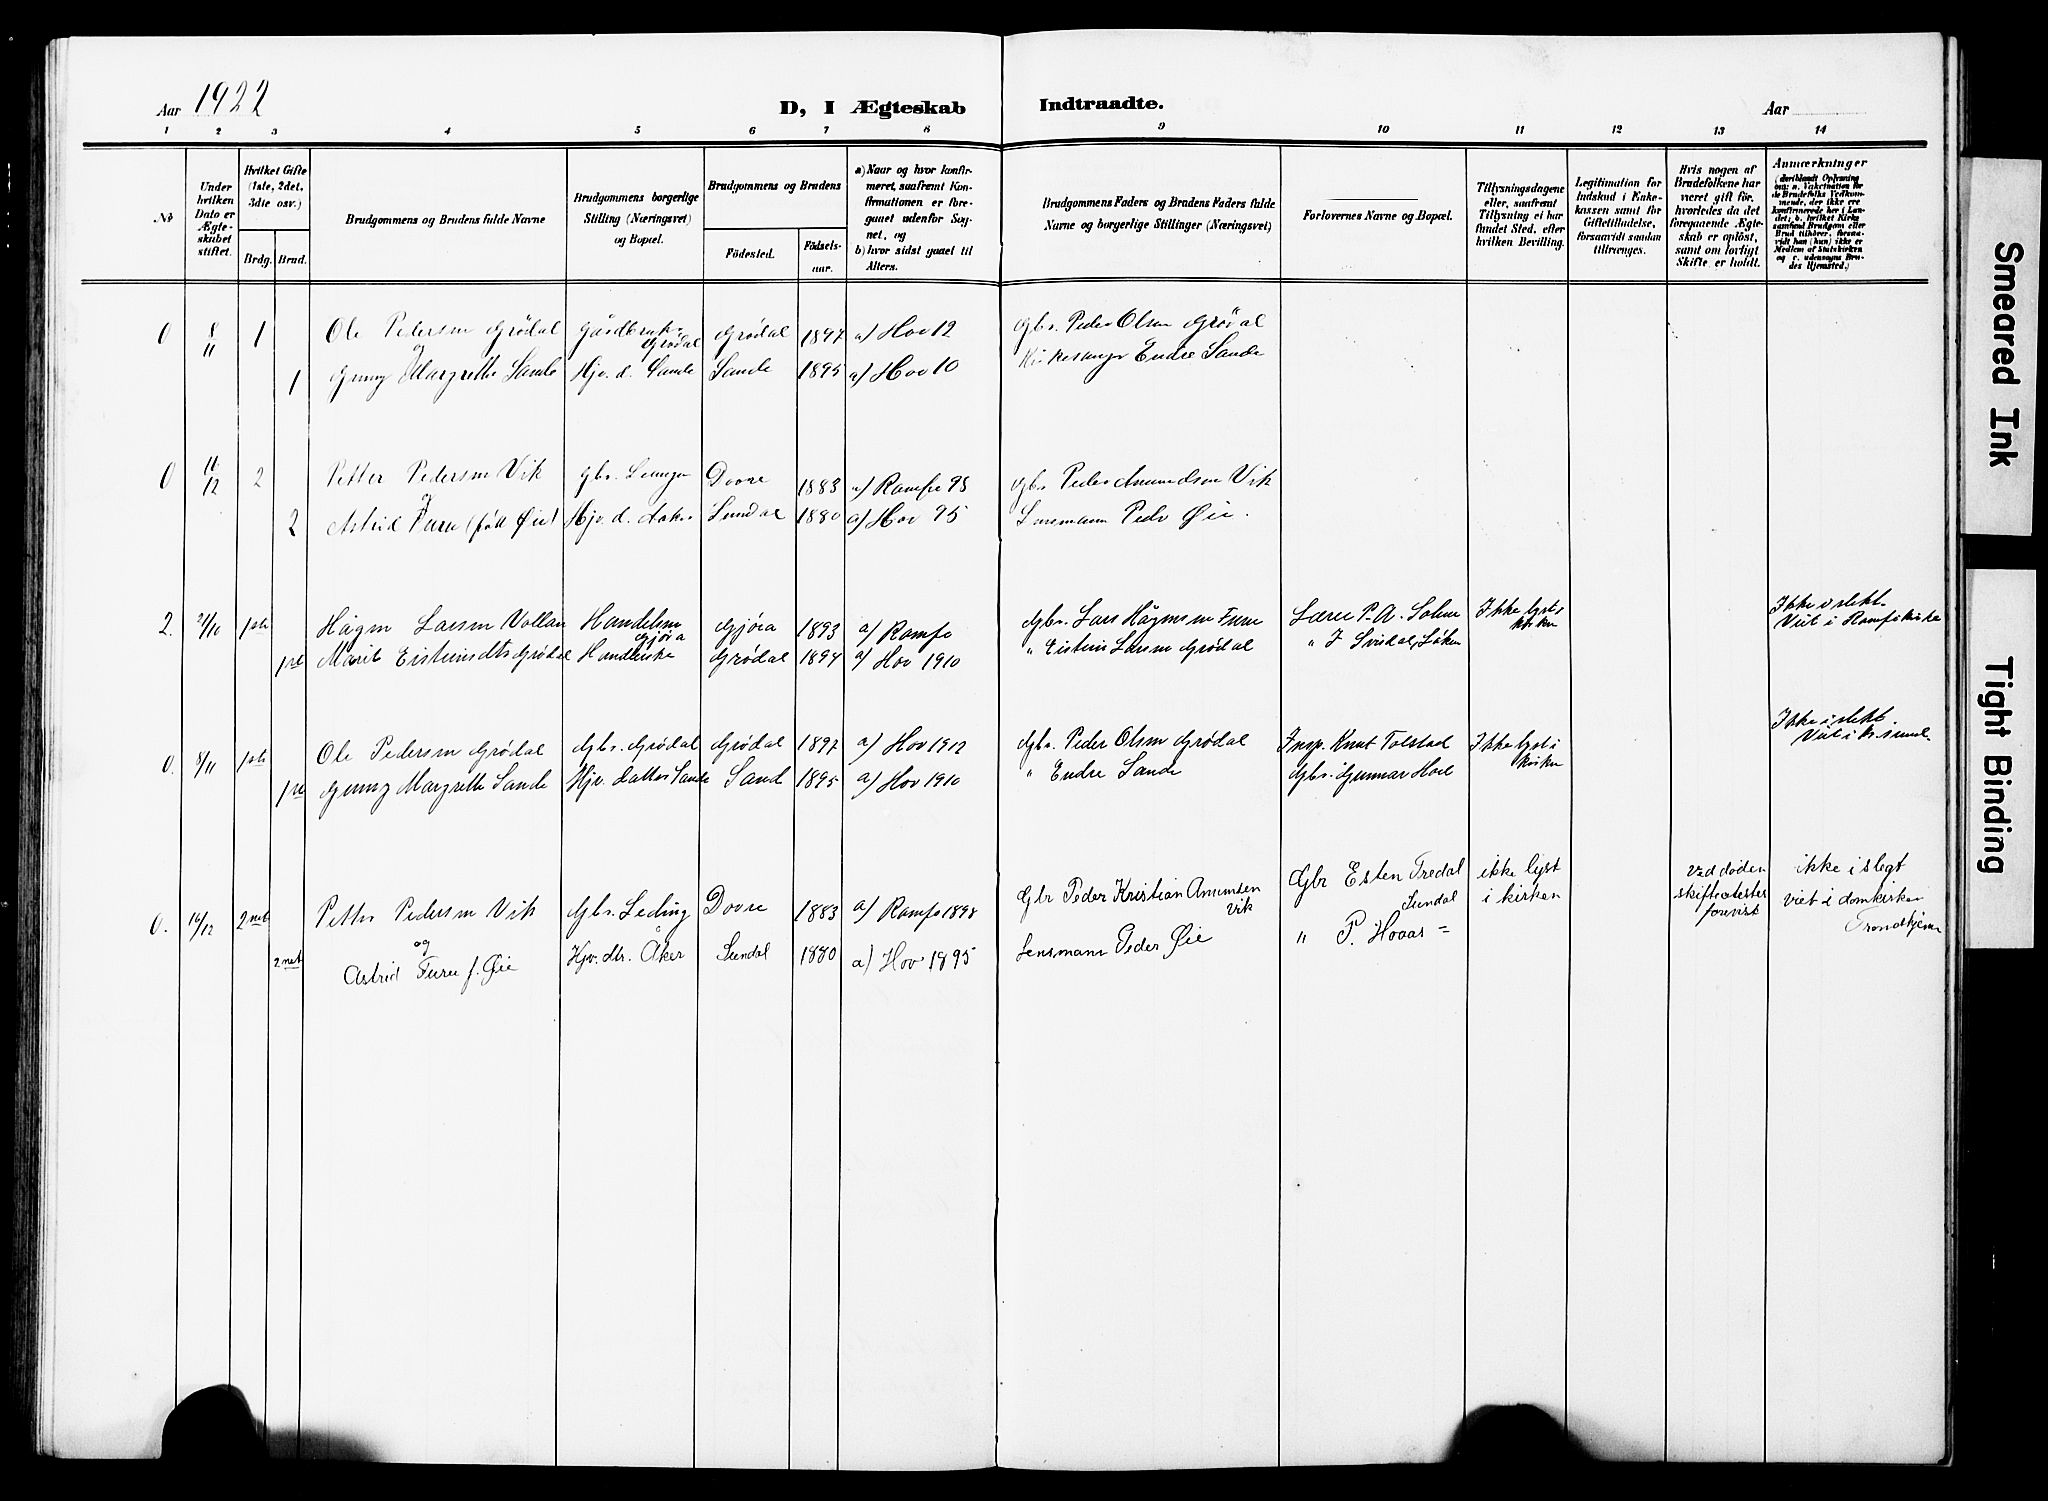 Aar 1922
D, I Ægteskab Indtraadte.
Aar
1 2 3 4 5 6 7 8 9 10 11 12 13 14
No
Under hvilken Dato er Ægteskabet stiftet.
Hvilket Gifte (1ste, 2det, 3die osv.)
Brdg. Brud.
Brudgommens og Brudens fulde Navne
Brudgommens borgerlige Stilling (Næringsvei) og Bopæl.
Brudgommens og Brudens
Födested. Födselsaar.
a) Naar og hvor konfirmeret, saafremt Konfirmationen er foregaaet udenfor Sognet, og
b) hvor sidst gaaet til Alters.
Brudgommens Faders og Brudens Faders fulde Navne og borgerlige Stillinger (Næringsvei)
Forlovernes Navne og Bopæl.
Tillysningsdagene eller, saafremt Tillysning ei har fundet Sted, efter hvilken Bevilling.
Legitimation for Indskud i Enkekassen samt for Giftetilladelse, forsaavidt saadan tiltrænges.
Hvis nogen af Brudefolkene har været gift før, hvorledes da det foregaaende Ægteskab er opløst, samt om lovligt Skifte er holdt.
Anmærkninger
(deriblandt Oplysning om: a. Vakcination for de Brudefolks Vedkommende, der ikke ere konfirmerede her i Landet; b. hvilket Kirkesamfund Brudgom eller Brud tilhører, forsaavidt han (hun) ikke er Medlem af Statskirken og c. udensogns Brudes Hjemsted.)
0 8/11 1 Ole Pedersen Grødal Gårdbruk. Grødal Grødal 1897 a) Hov 12 Gbr. Peder Olsen Grødal
og
1 Gunny Margrethe Sande Hjv. d. Sande Sande 1895 a) Hov 10 Kirkesanger Endre Sande
0 16/12 2 Petter Pedersen Vik Gbr. Dovre 1883 a) Romfo 98 Gbr. Peder Amundsen Vik
og
2 Astrid Furu (født Øie) Hjv. d. Sundal 1880 a) Hov 95 Lensmann Peder Øie.
2. 21/10 1ste Hågen Larsen Vollan Handelsm Gjøra Gjøra 1893 a) Romfo Gbr. Lars Hågensen Furu Lærer P. A. Solem Ikke lyst i kirken Ikke i slekt. Viet i Romfo kirke
1ste Marit Eisteinsdtr Grødal Grødal 1894 a) Hov 1910 " Eistein Larsen Grødal
0. 8/11 1ste Ole Pedersen Grødal Gbr. Grødal Grødal 1897 a) Hov 1912 Gbr. Peder Olsen Grødal Insp. Knut Tolstad Ikke lyst i kirken Ikke i slekt.
1ste Gunny Margrethe Sande Hjv. datter Sande Sand 1895 a) Hov 1910 " Endre Sande Gbr. Gunnar Hoel
0. 16/12 2net Petter Pedersen Vik Gbr. Dovre 1883 a) Romfo 1898 Gbr Peder Kristian Amundsen Vik Gbr Esten Tredal Sundal ikke lyst i kirken ved døden skifteattester forevist ikke i slegt viet i domkirken Trondhjem
og
2net Astrid Furu f. Øie Hjv. dtr. Åker Sundal 1880 a) Hov 1895 Lensmann Peder Øie " P. Hovas =
Smeared Ink
Tight Binding